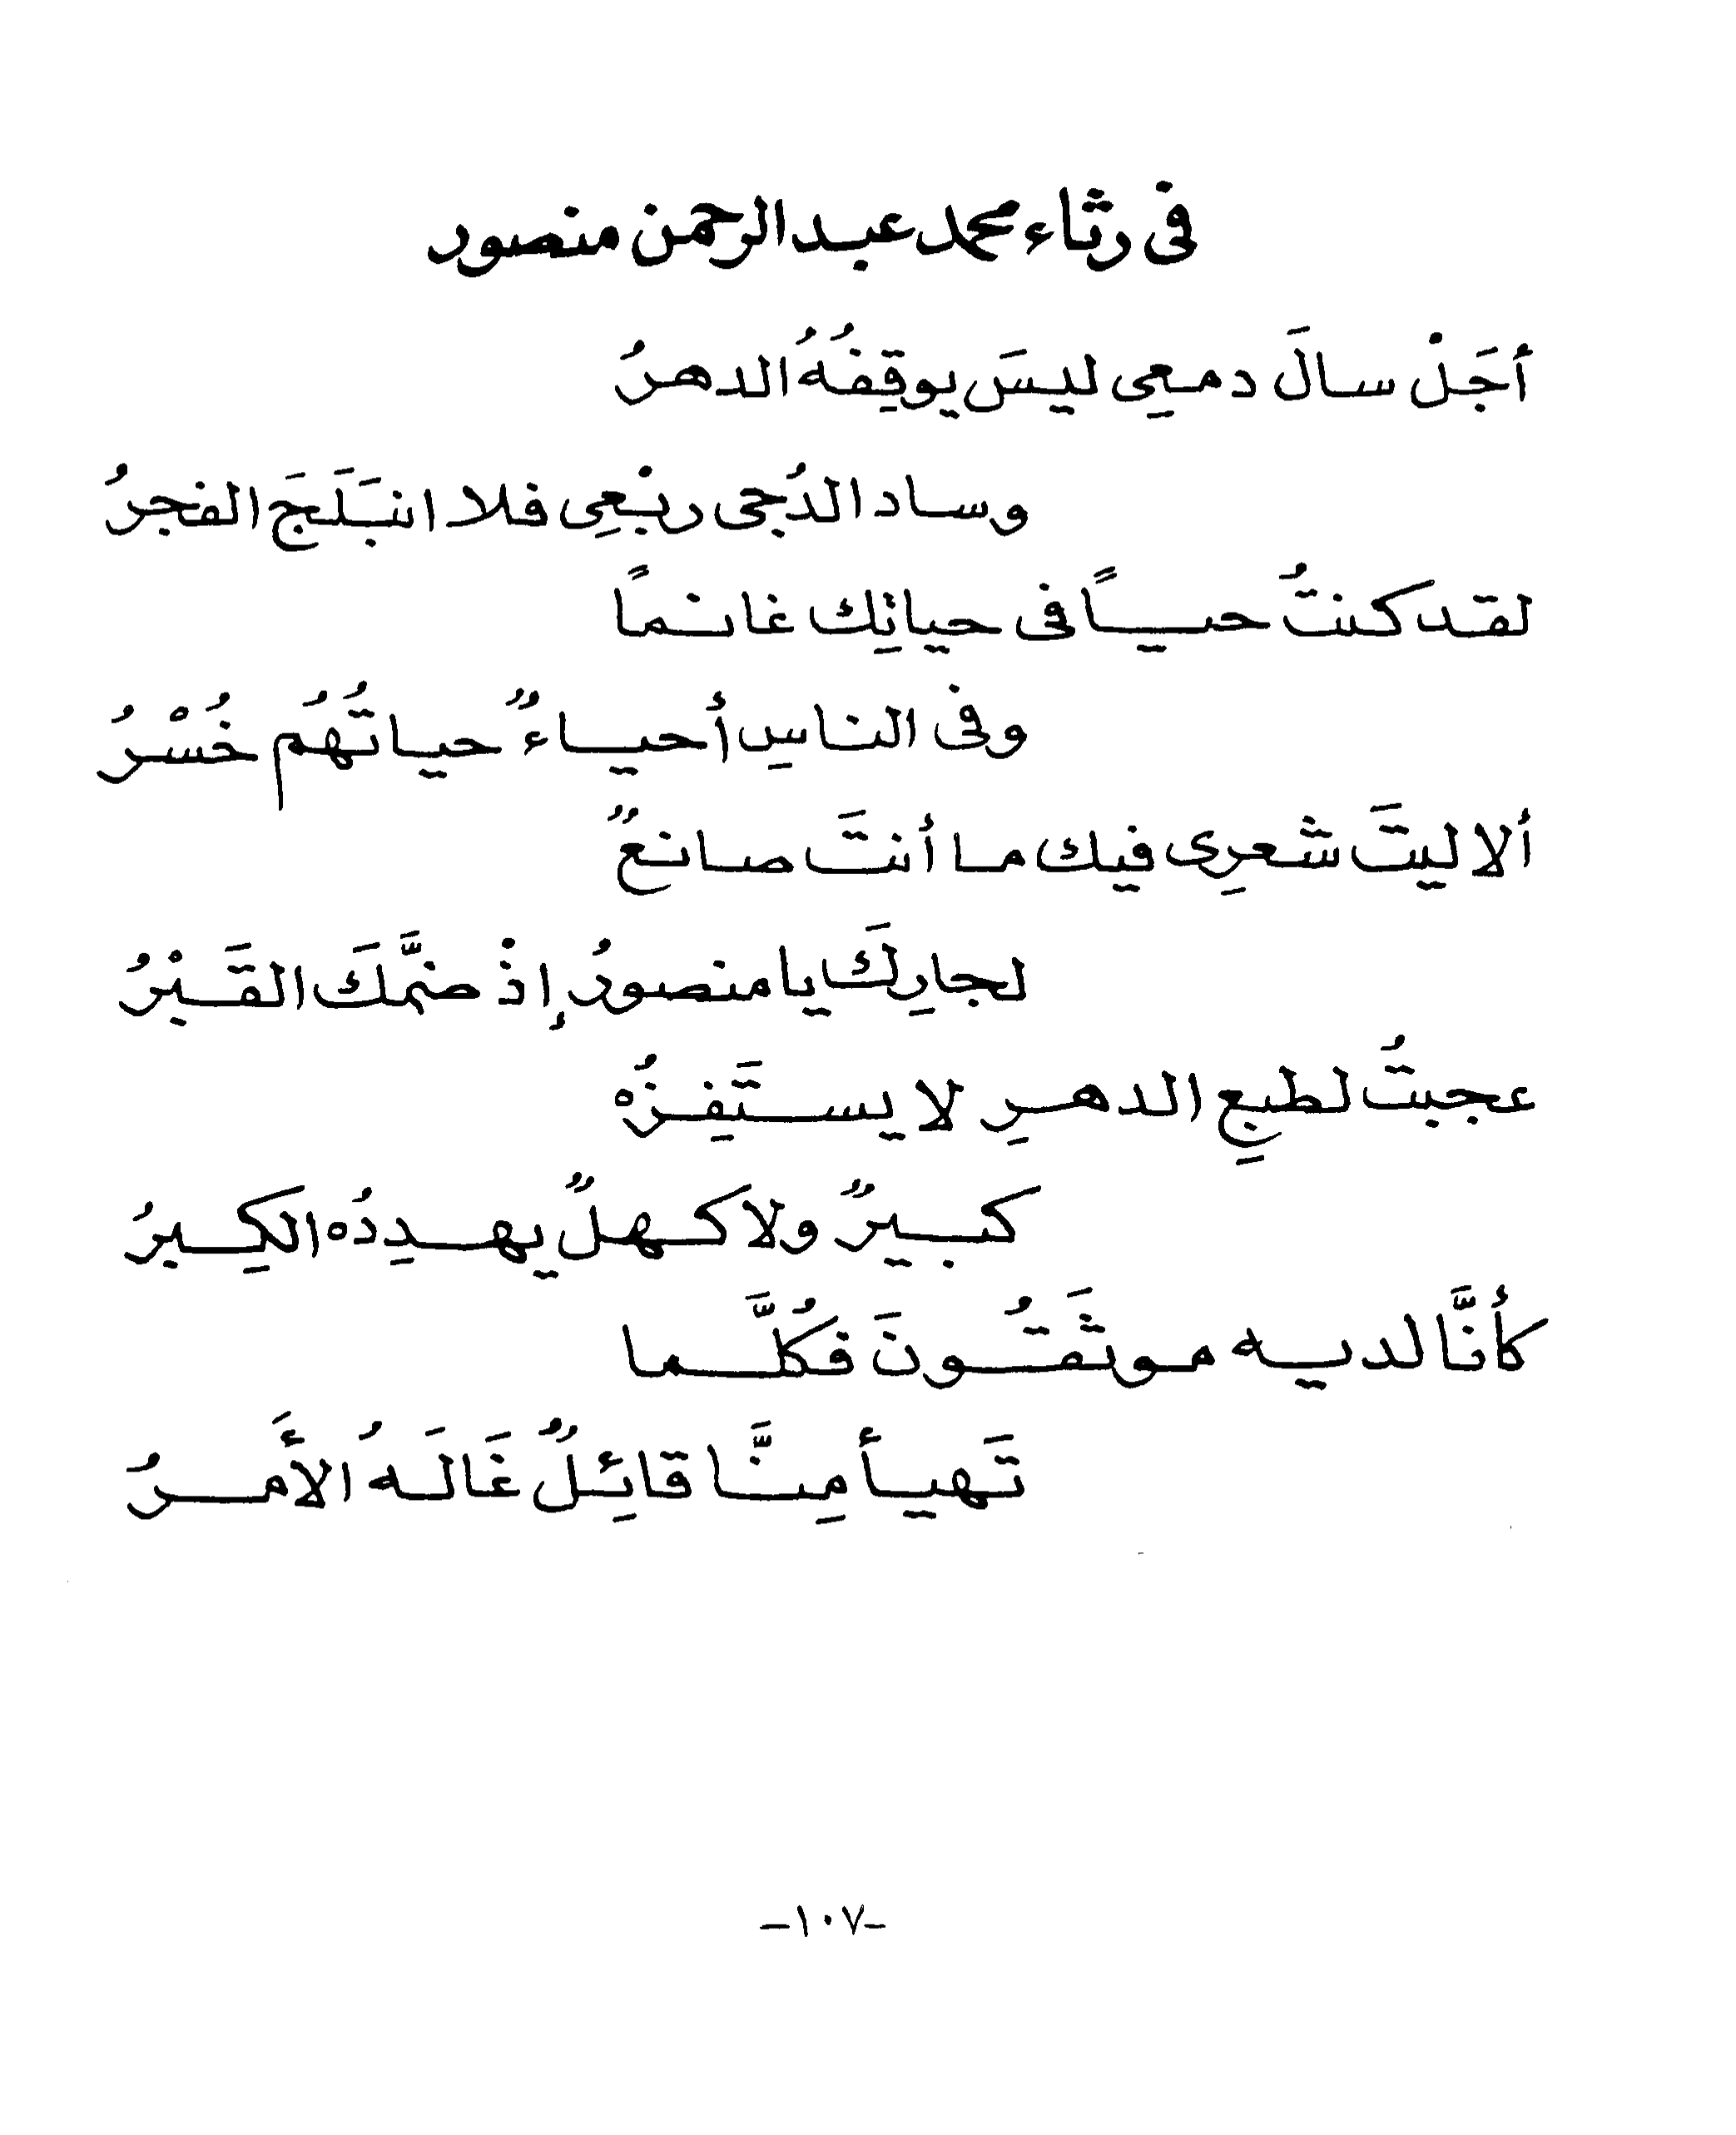 فى رثاء محمد عبد الرحمن منصور
أجَلْ سالَ دمعِى ليسَ يوقِفُهُ الدهرُ
وساد الدُجى ربْعِى فلا انبَلَجَ الفجرُ
لقد كنتُ حياً فى حياتِك غانماً
وفى الناسِ أحياءٌ حياتُهُم خُسْرُ
ألا ليتَ شعرِى فيك ما أنتَ صانعٌ
لجارِكَ يا منصورُ إذْ ضمَّكَ القَبْرُ
عجبتُ لطبعِ الدهرِ لا يستَفِزُه
كبيرٌ ولا كهلٌ يهدِدُه الكِبرُ
كأنَّا لديه موثَقُونَ فكُلَّما
تَهيأ مِنَّا قائِلٌ غَالَهُ الأَمرُ
-١٠٧-